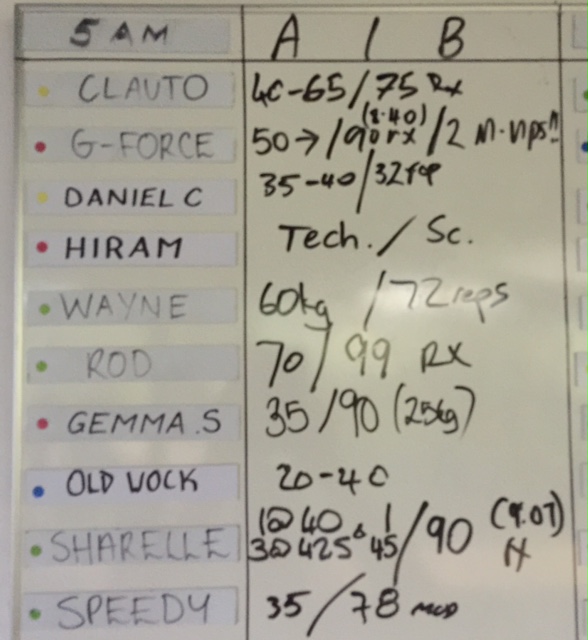 5 AM A / B
CLAUTO 40-65/75 Rx
G-FORCE 50→/90 rx (8.40) /2 M.nps!!
DANIEL C 35-40/32 rep
HIRAM Tech. / Sc.
WAYNE 60kg /72 reps
ROD 70/99 RX
GEMMA.S 35/90 (25kg)
OLD VOCK 20-40
1@40 & 1
SHARELLE 3@425 45/90 (9.07)
SPEEDY 35/78 mod